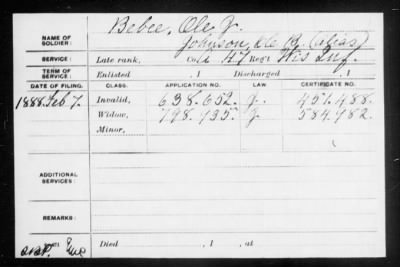 Bebee, Ole J.
NAME OF SOLDIER: Johnson, Ole B. (alias)
SERVICE: Late rank, Co. A 47 Reg't Wis Inf.
TERM OF SERVICE: Enlisted , 1 Discharged , 1
DATE OF FILING. CLASS. APPLICATION NO. LAW CERTIFICATE NO.
1888 Feb 7. Invalid, 638.652. J. 451.488.
Widow, 798.735. J. 584.482.
Minor,
ADDITIONAL SERVICES:
REMARKS:
Died , 1 , at